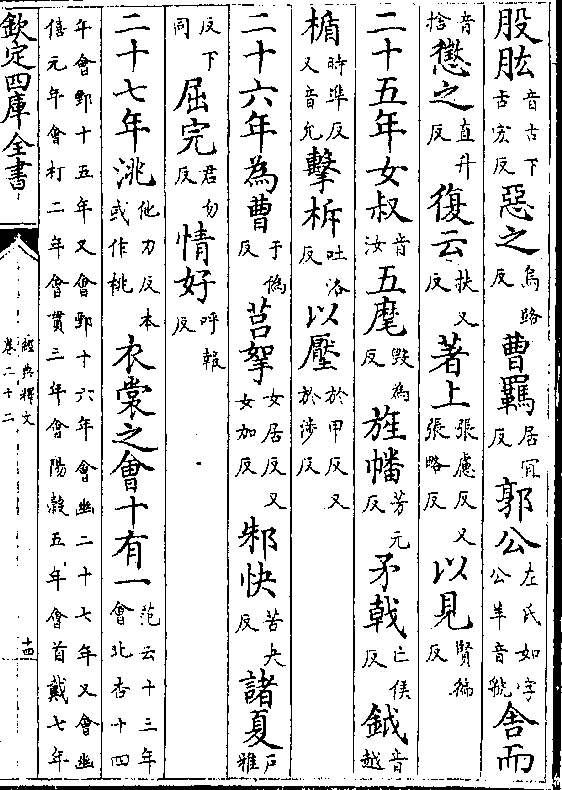 股肱音古下古宏反惡之烏路反曹羈居宜反郭公左氏如字公羊音虢舍而
音捨懲之直升反復云扶又反著上張慮反又張略反以見賢徧反
二十五年女叔音汝五麾毀為反旌幡芳元反矛戟亡侯反鉞音越
楯時準反又音允擊柝吐洛反以壓於甲反又於涉反
二十六年為曹于偽反莒挐女居反又女加反邾快苦夬反諸夏戶雅
反下同屈完君勿反情好呼報反
二十七年洮他刀反本或作桃衣裳之會十有一范云十三年會北杏十四
年會鄄十五年又會鄄十六年會幽二十七年又會幽
僖元年會朾二年會貫三年會陽穀五年會首戴七年
欽定四庫全書
經典釋文
卷二十二
十四